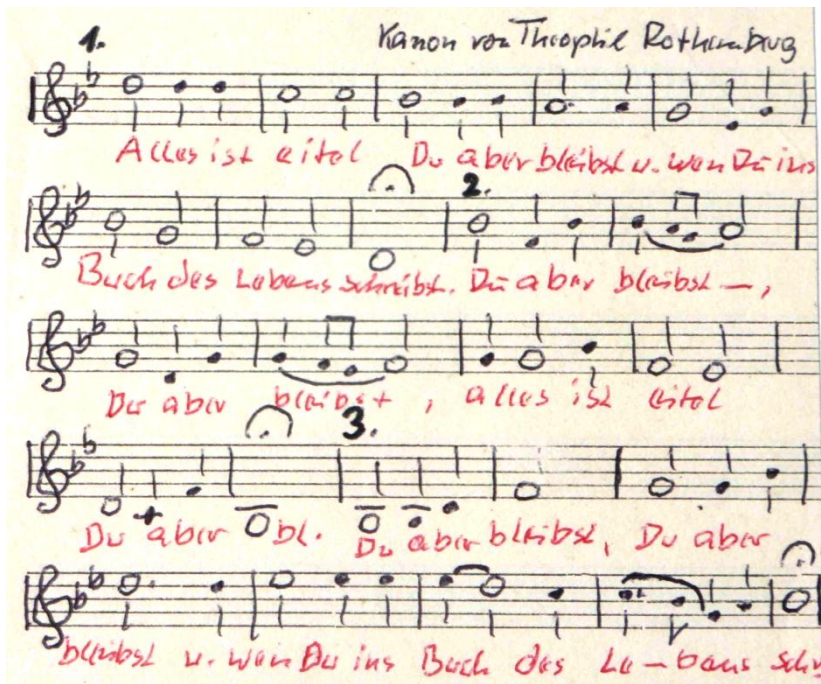 1. Kanon von Theophil Rothenberg
Alles ist eitel Du aber bleibst u. wen Du ins
2.
Buch des Lebens schreibst. Du aber bleibst —,
Du aber bleibst, alles ist eitel
3.
Du aber bl. Du aber bleibst, Du aber
bleibst u. wen Du ins Buch des Le-bens schr